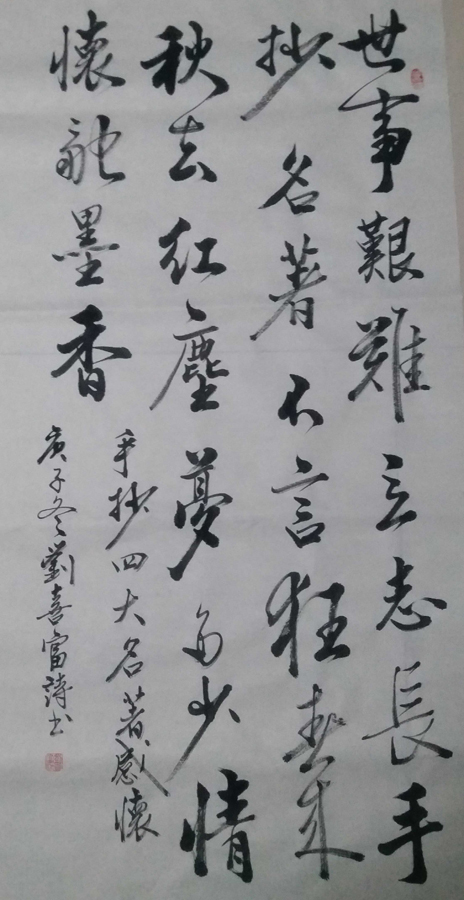 世事艱難立志長手
抄名著不言狂春來
秋去红塵夢多少情
懷融墨香
手抄四大名著感懷
庚子冬劉喜富詩书